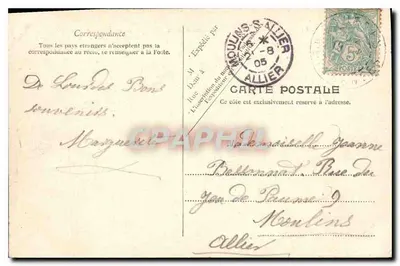 Correspondance
Tous les pays étrangers n'acceptent pas la
correspondance au recto, se renseigner à la Poste.
Expédié par
M
Rue
MOULINS-S-ALLIER
8
05
ALLIER
5
CARTE POSTALE
Ce côté est exclusivement réservé à l'adresse.
De Lourdes Bons
souvenirs.
Marguerite
Mademoiselle Jeanne
Bessonnat Rue du
Jeu de Paume 9
Moulins
Allier